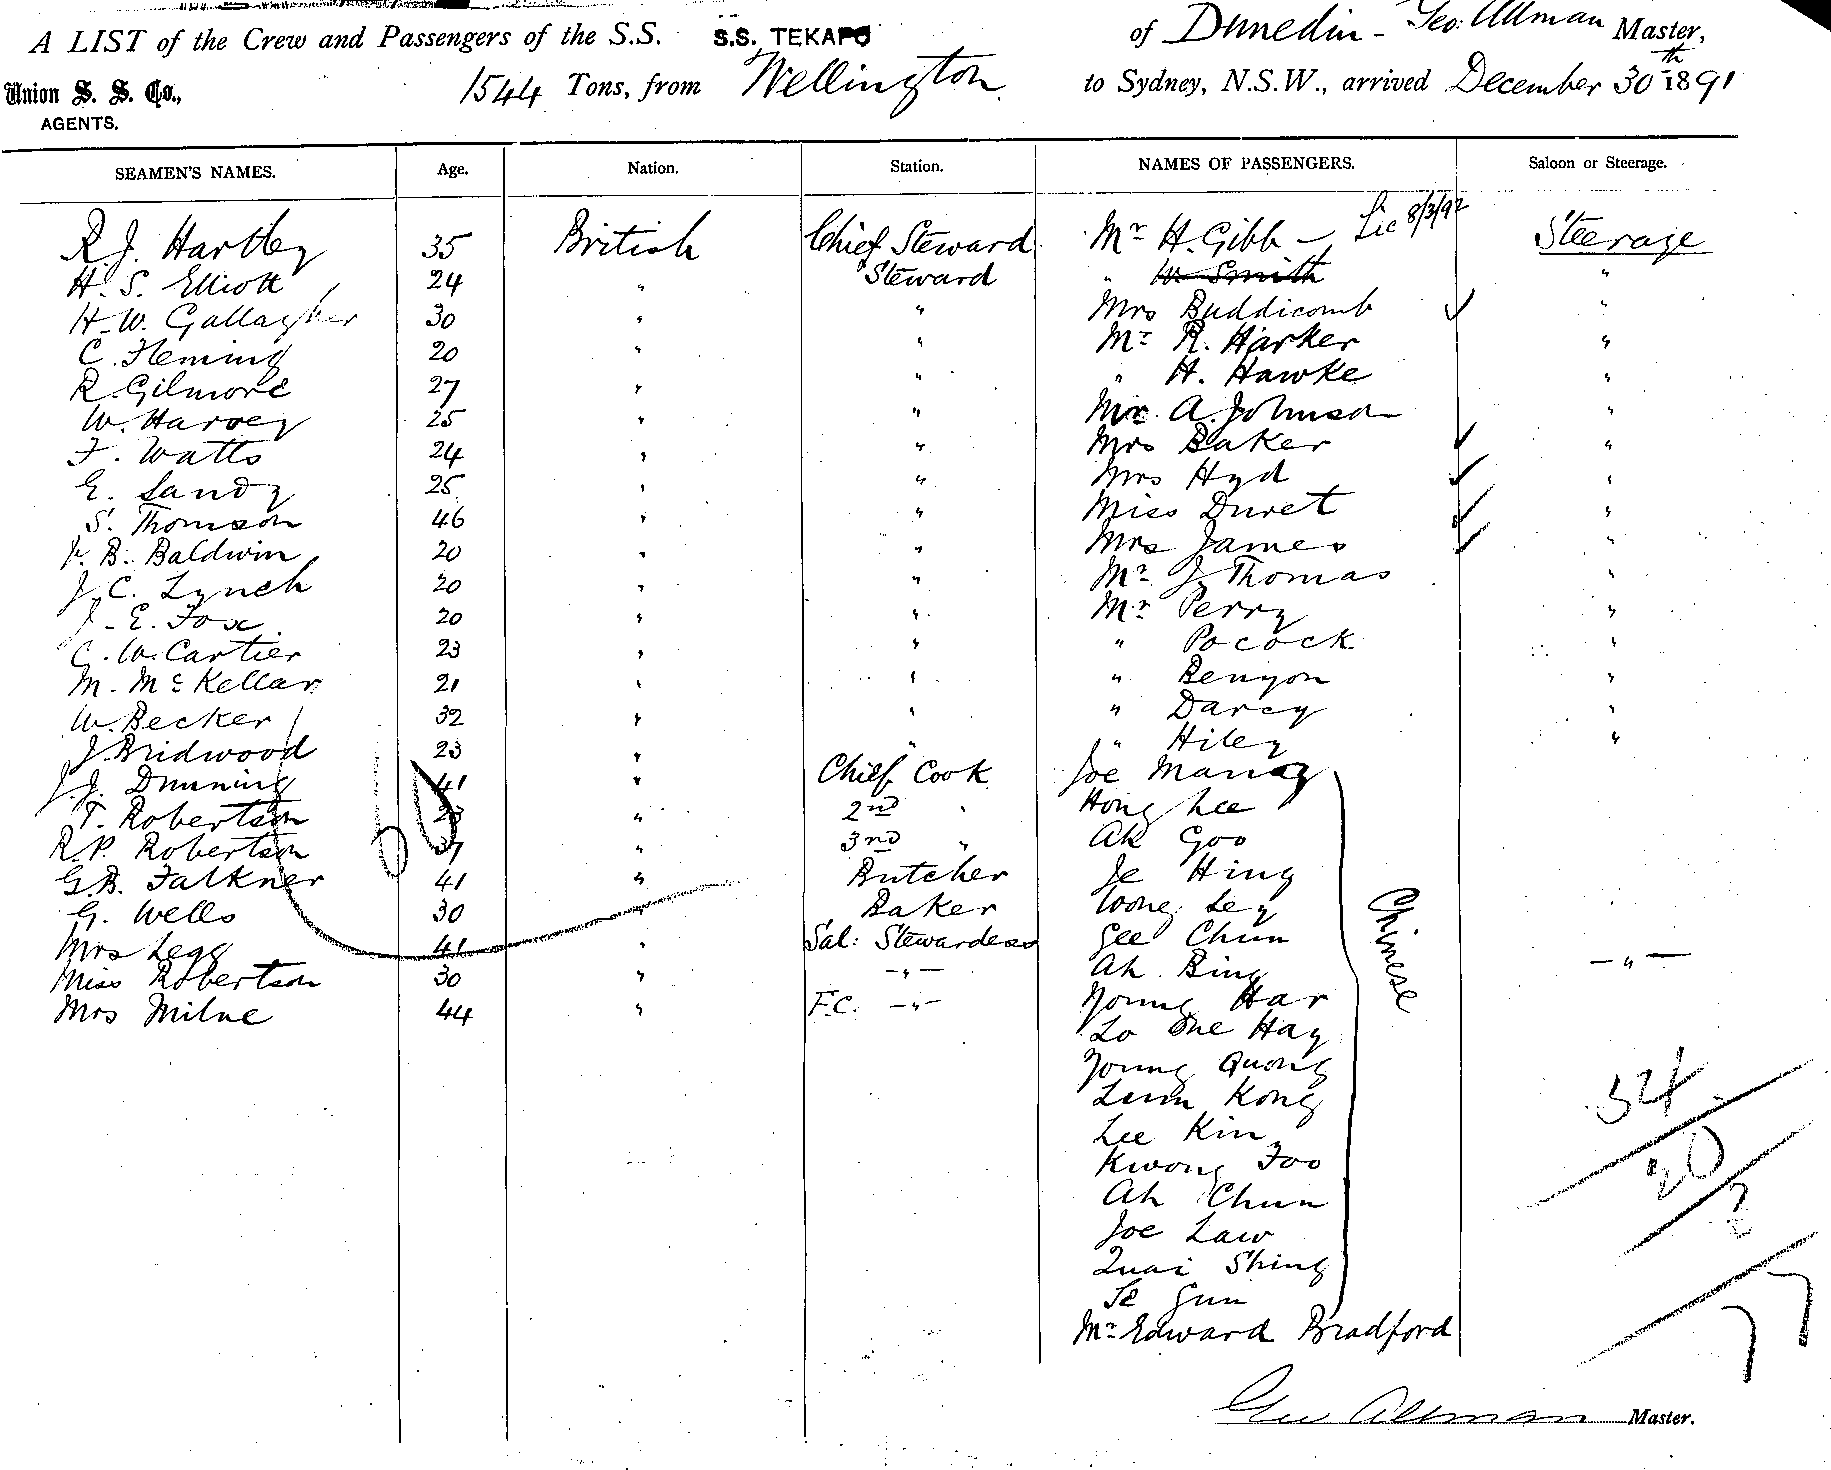 A LIST of the Crew and Passengers of the S.S. S.S. TEKAPO of Dunedin - Geo: Allman Master,
Union S. S. Co., 1544 Tons, from Wellington to Sydney, N.S.W., arrived December 30th 1891
AGENTS.
SEAMEN'S NAMES. Age. Nation. Station. NAMES OF PASSENGERS. Saloon or Steerage.
R. J. Hartley 35 British Chief Steward Mr H. Gibb - Lic 8/3/92 Steerage
H. S. Elliott 24 " Steward " W Smith "
H. W. Gallagher 30 " " Mrs Buddicomb ✓ "
C. Fleming 20 " " Mr R. Harker "
R. Gilmore 27 " " " H. Hawke "
W. Harvey 25 " " Mr. A. Johnson "
F. Watts 24 " " Mrs Baker ✓ "
E. Landy 25 " " Mrs Hyd ✓ "
S. Thomson 46 " " Miss Duret ✓ "
B. Baldwin 20 " " Mrs James ✓ "
J. C. Lynch 20 " " Mr J Thomas "
J. E. Fox 20 " " Mr Perry "
C. W. Cartier 23 " " " Pocock "
M. McKellar 21 " " " Benyon "
W. Becker 32 " " " Darcy "
J. Bridwood 23 " " " Hiley "
J. J. Dunning 41 " Chief Cook Joe Mang
T. Robertson 23 " 2nd " Hong Lee
R. P. Robertson 37 " 3rd " Ah Goo
G. B. Falkner 41 " Butcher Je Hing
G. Wells 30 " Baker Wong Ley
Mrs Legg 41 " Sal: Stewardess Gee Chun
Miss Robertson 30 " -"- Ah Bing -"-
Mrs Milne 44 " F.C. -"- Young Har
Chinese
Lo One Hay
Young Quong
Leun Kong
Lee Kin
Kwong Foo
Ah Chun
Joe Law
Quai Shing
Se Gun
Mr Edward Bradford
54
20
3
77
Geo Allman Master.